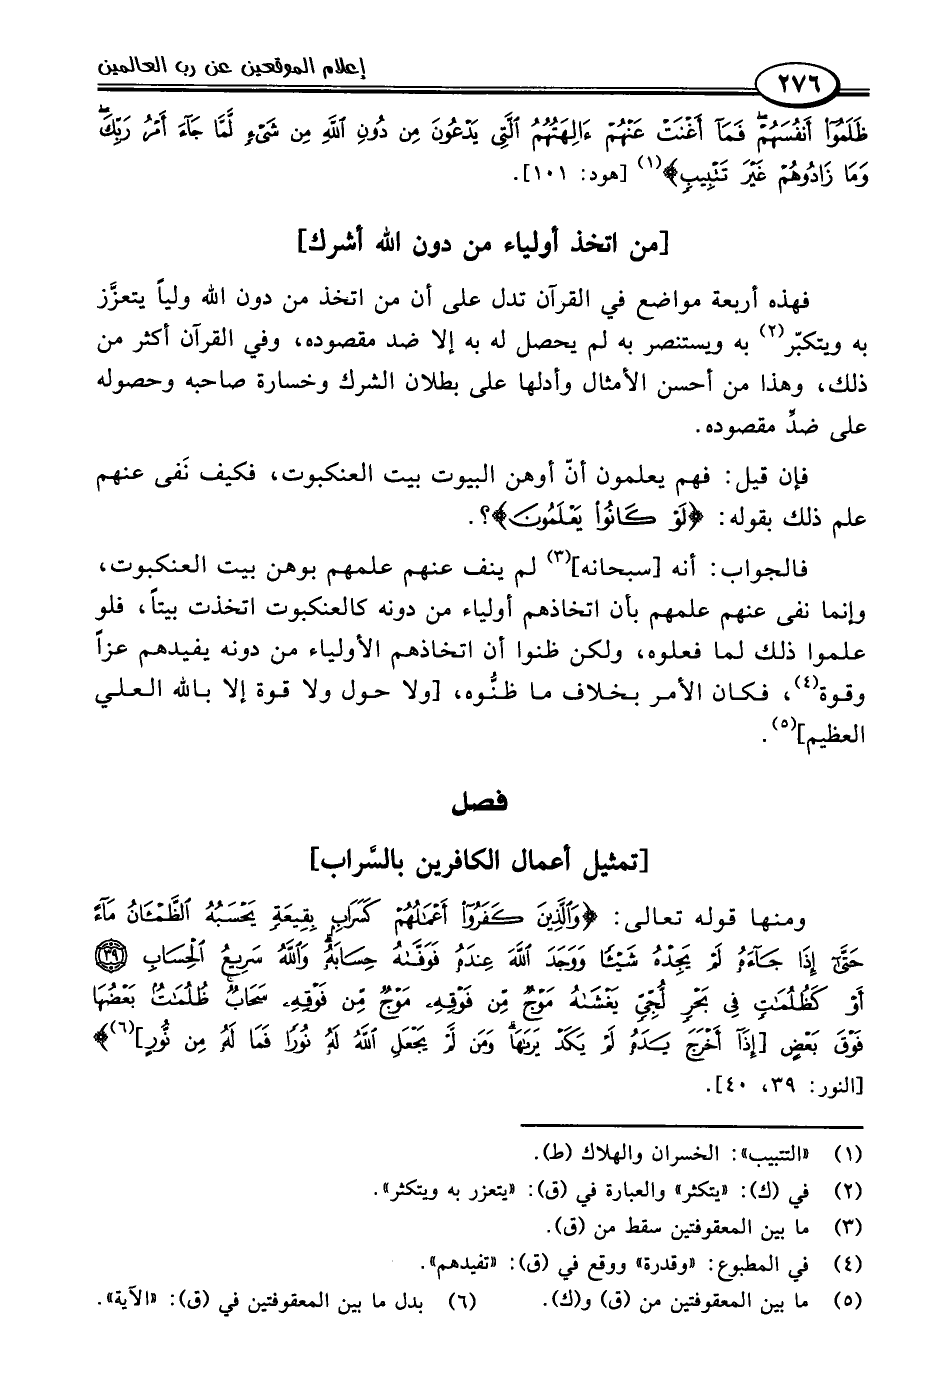 إعلام الموقعين عن رب العالمين
٢٧٦
ظَلَمُوٓا۟ أَنفُسَهُمْ ۖ فَمَآ أَغْنَتْ عَنْهُمْ ءَالِهَتُهُمُ ٱلَّتِى يَدْعُونَ مِن دُونِ ٱللَّهِ مِن شَىْءٍ لَّمَّا جَآءَ أَمْرُ رَبِّكَ ۖ
وَمَا زَادُوهُمْ غَيْرَ تَتْبِيبٍ﴾(١) [هود: ١٠١].
[من اتخذ أولياء من دون الله أشرك]
فهذه أربعة مواضع في القرآن تدل على أن من اتخذ من دون الله ولياً يتعزَّز
به ويتكبّر(٢) به ويستنصر به لم يحصل له به إلا ضد مقصوده، وفي القرآن أكثر من
ذلك، وهذا من أحسن الأمثال وأدلها على بطلان الشرك وخسارة صاحبه وحصوله
على ضدِّ مقصوده.
فإن قيل: فهم يعلمون أنّ أوهن البيوت بيت العنكبوت، فكيف نَفى عنهم
علم ذلك بقوله: ﴿لَوْ كَانُوا۟ يَعْلَمُونَ﴾؟.
فالجواب: أنه [سبحانه](٣) لم ينف عنهم علمهم بوهن بيت العنكبوت،
وإنما نفى عنهم علمهم بأن اتخاذهم أولياء من دونه كالعنكبوت اتخذت بيتاً، فلو
علموا ذلك لما فعلوه، ولكن ظنوا أن اتخاذهم الأولياء من دونه يفيدهم عزاً
وقوة(٤)، فكان الأمر بخلاف ما ظنُّوه، [ولا حول ولا قوة إلا بالله العلي
العظيم](٥).
فصل
[تمثيل أعمال الكافرين بالسَّراب]
ومنها قوله تعالى: ﴿وَٱلَّذِينَ كَفَرُوٓا۟ أَعْمَٰلُهُمْ كَسَرَابٍۭ بِقِيعَةٍ يَحْسَبُهُ ٱلظَّمْـَٔانُ مَآءً
حَتَّىٰٓ إِذَا جَآءَهُۥ لَمْ يَجِدْهُ شَيْـًٔا وَوَجَدَ ٱللَّهَ عِندَهُۥ فَوَفَّىٰهُ حِسَابَهُۥ ۗ وَٱللَّهُ سَرِيعُ ٱلْحِسَابِ ٣٩
أَوْ كَظُلُمَٰتٍ فِى بَحْرٍ لُّجِّىٍّ يَغْشَىٰهُ مَوْجٌ مِّن فَوْقِهِۦ مَوْجٌ مِّن فَوْقِهِۦ سَحَابٌ ۚ ظُلُمَٰتٌۢ بَعْضُهَا
فَوْقَ بَعْضٍ [إِذَآ أَخْرَجَ يَدَهُۥ لَمْ يَكَدْ يَرَىٰهَا ۗ وَمَن لَّمْ يَجْعَلِ ٱللَّهُ لَهُۥ نُورًا فَمَا لَهُۥ مِن نُّورٍ](٦)﴾
[النور: ٣٩، ٤٠].
(١) «التتبيب»: الخسران والهلاك (ط).
(٢) في (ك): «يتكثر» والعبارة في (ق): «يتعزر به ويتكثر».
(٣) ما بين المعقوفتين سقط من (ق).
(٤) في المطبوع: «وقدرة» ووقع في (ق): «تفيدهم».
(٥) ما بين المعقوفتين من (ق) و(ك). (٦) بدل ما بين المعقوفتين في (ق): «الآية».